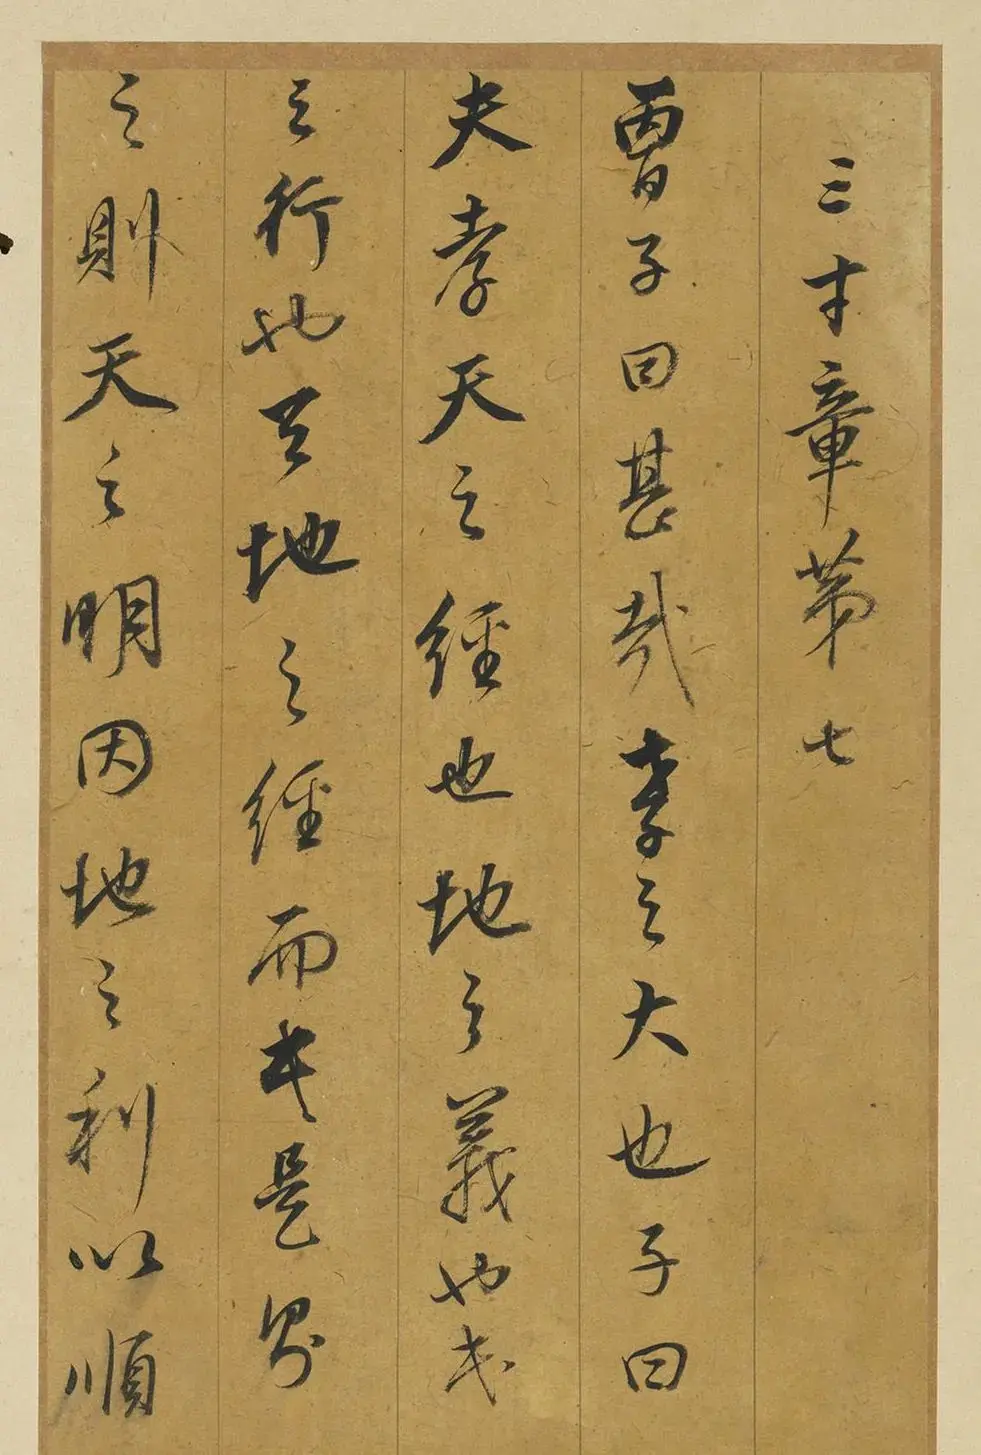 三才章第七
曾子曰甚哉孝之大也子曰
夫孝天之經也地之義也民
之行也天地之經而民是則
之則天之明因地之利以順